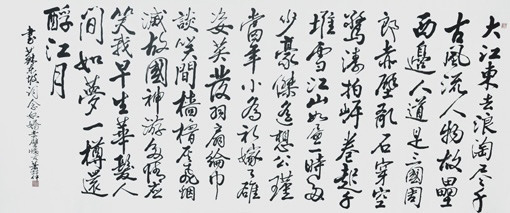 大江東去浪淘尽千
古風流人物故壘
西邊人道是三國周
郎赤壁亂石穿空
驚濤拍岸卷起千
堆雪江山如画一時多
少豪傑遙想公瑾
當年小喬初嫁了雄
姿英發羽扇綸巾
談笑間檣櫓灰飛煙
滅故國神游多情應
笑我早生華髮人
間如夢一樽還
酹江月
書蘇東坡詞念奴嬌赤壁懷古